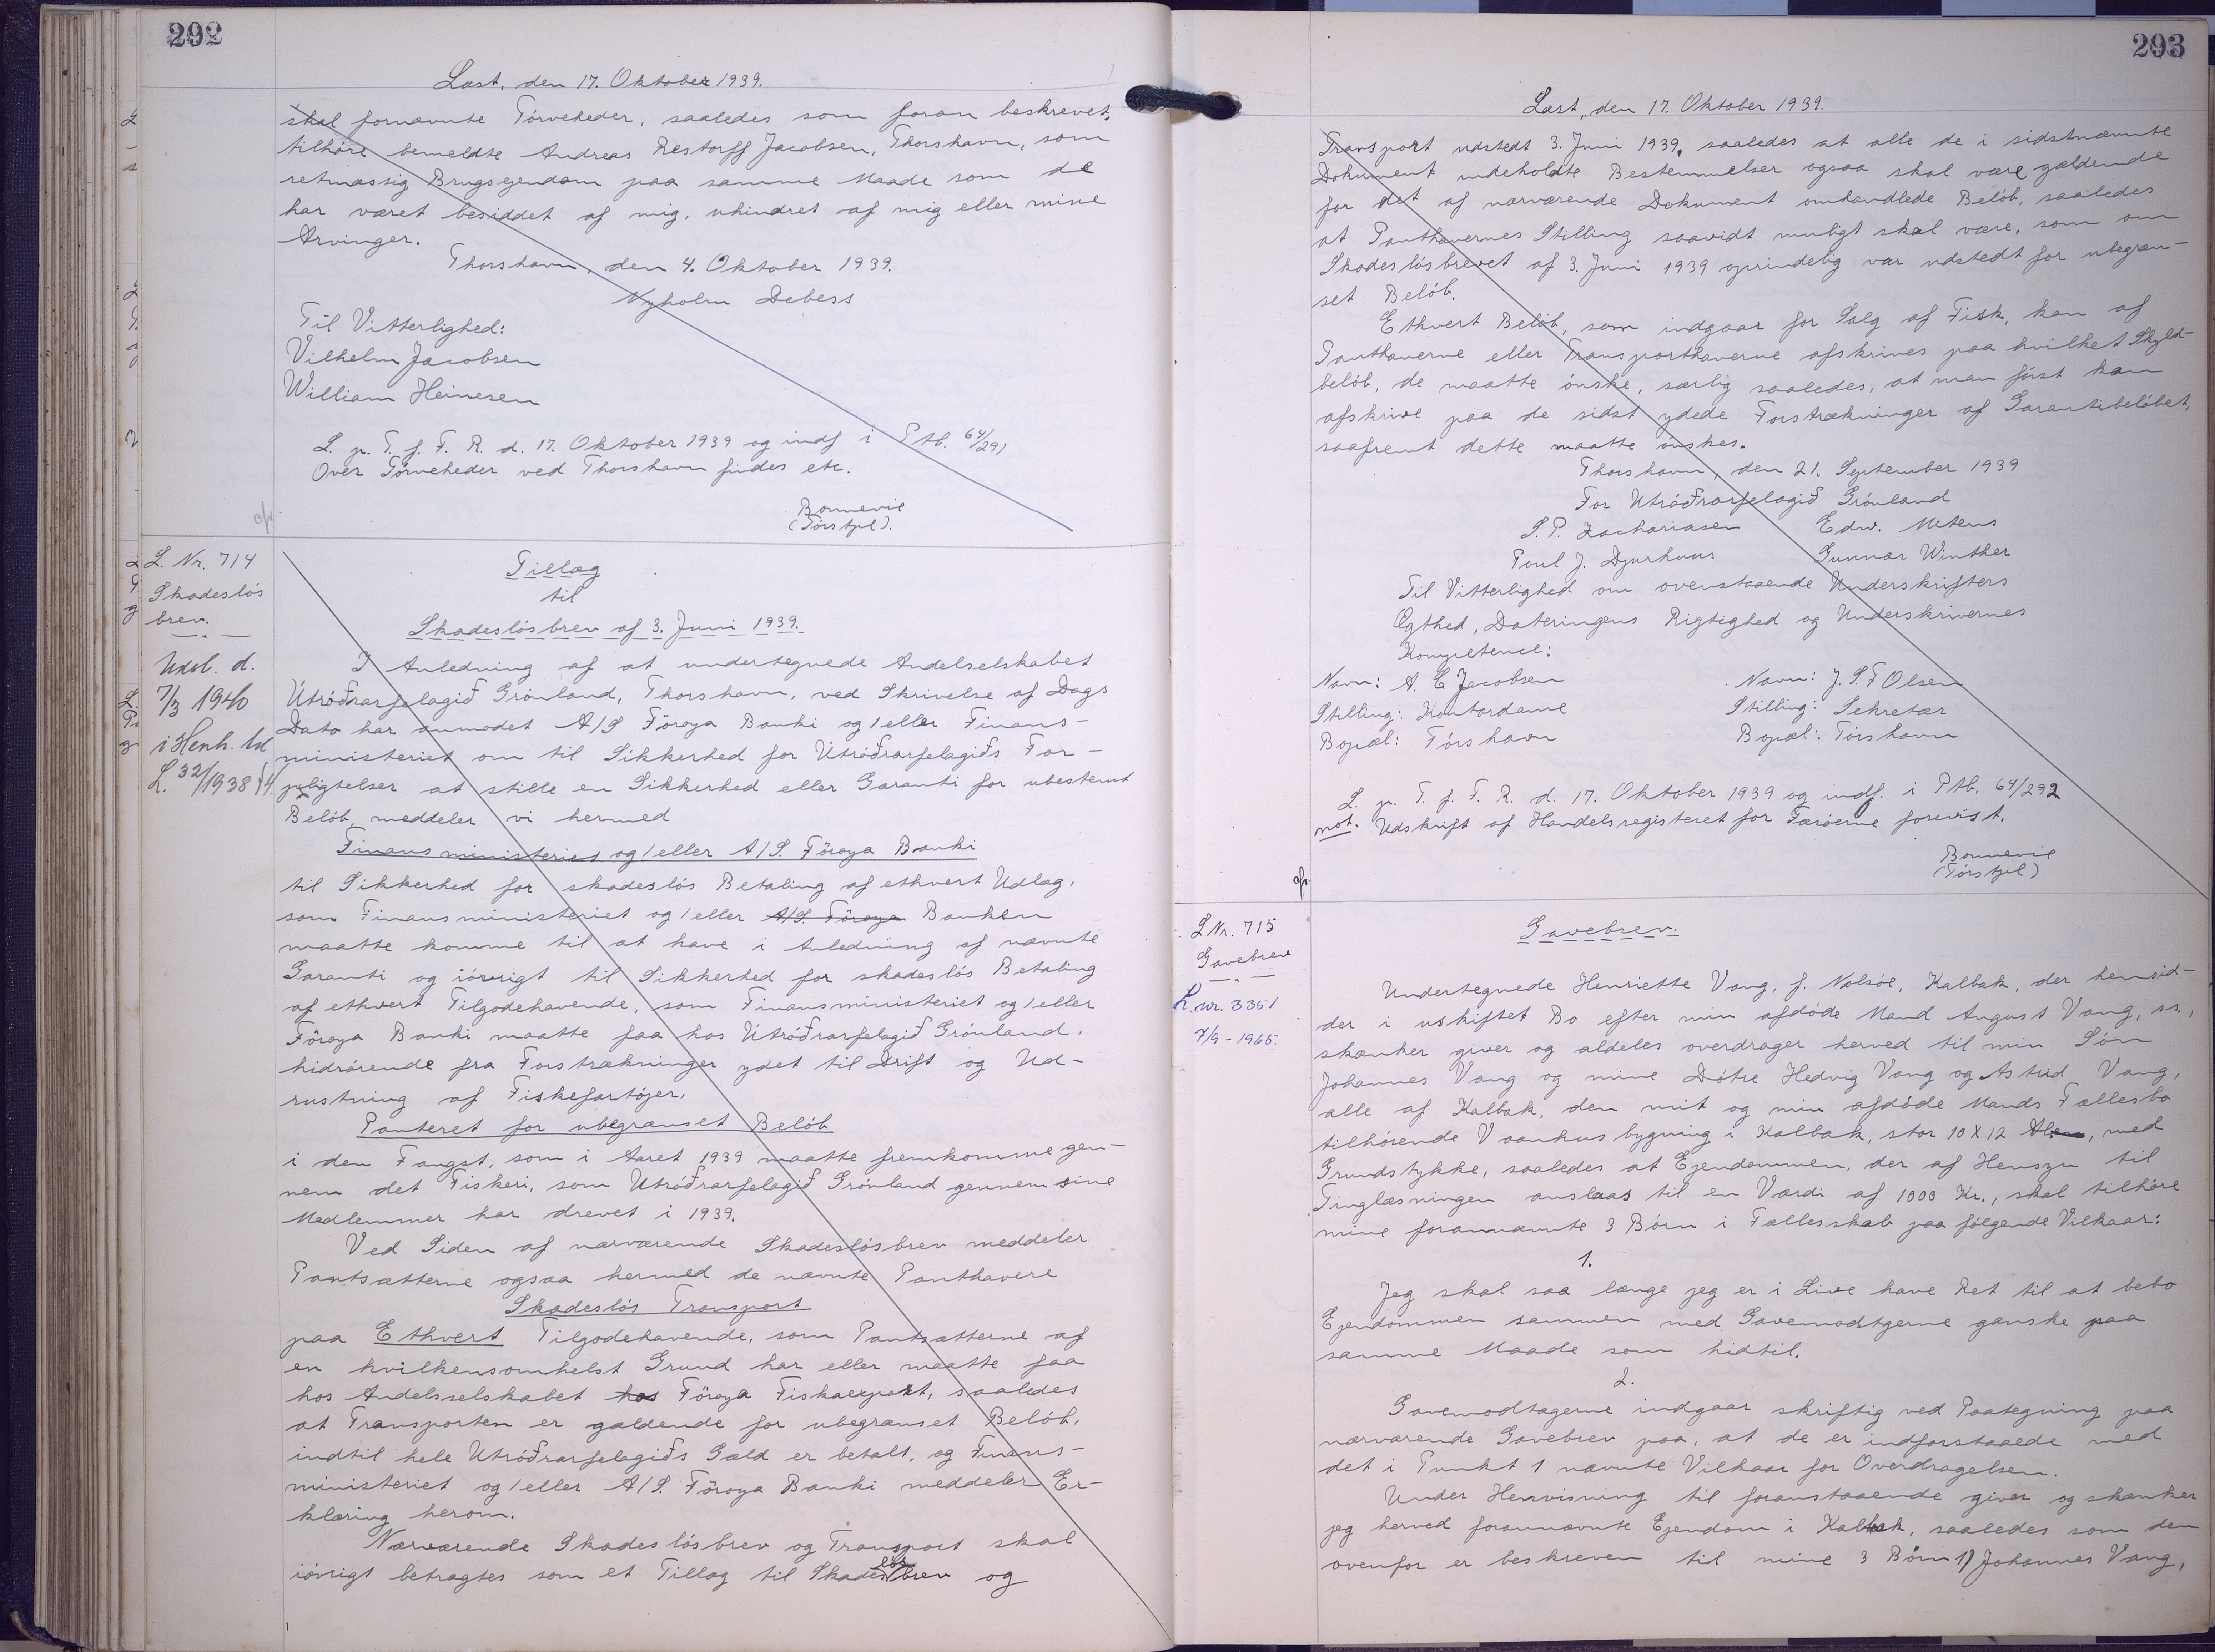 292
Læst, den 17. Oktober 1939.
skal fornævnte Tørveheder, saaledes som foran beskrevet,
tilhöre bemeldte Andreas Restorff Jacobsen, Thorshavn, som
retmæssig Brugsejendom paa samme Maade som de
har været besiddet af mig, uhindret af mig eller mine
Arvinger.
Thorshavn, den 4. Oktober 1939.
Nyholm Debess
Til Vitterlighed:
Vilhelm Jacobsen
William Heinesen
L. p. T. f. F. R. d. 17. Oktober 1939 og indf i Ptb. 64/291
Over Tørveheder ved Thorshavn findes etc.
Bonnevie
(Törstpl).
L. Nr. 714
Skadeslós
brev.
Udsl. d.
7/3 1940
i Henh. til
L. 32/1938 §4.
Tillæg
til
Skadeslósbrev af 3. Juni 1939.
I Anledning af at undertegnede Andelselskabet
Útróðrarfelagið Grónland, Thorshavn, ved Skrivelse af Dags
Dato har anmodet A/S Föroya Banki og/eller Finans-
ministeriet om til Sikkerhed for Útróðrarfelagiðs For-
pligtelser at stille en Sikkerhed eller Garanti for ubestemt
Belób, meddeler vi hermed
Finansministeriet og/eller A/S. Föroya Banki
til Sikkerhed for skadeslós Betaling af ethvert Udlæg,
som Finansministeriet og/eller A/S. Föroya Banken
maatte komme til at have i Anledning af nævnte
Garanti og ióvrigt til Sikkerhed for skadeslós Betaling
af ethvert Tilgodehavende, som Finansministeriet og/eller
Föroya Banki maatte faa hos Útróðrarfelagið Grónland,
hidrórende fra Forstrækninger ydet til Drift og Ud-
rustning af Fiskefartójer.
Panteret for ubegrænset Belób
i den Fangst, som i Aaret 1939 maatte fremkomme gen-
nem det Fiskeri, som Útróðrarfelagið Grónland gennem sine
Medlemmer har drevet i 1939.
Ved Siden af nærværende Skadeslósbrev meddeler
Pantsætterne ogsaa hermed de nævnte Panthavere
Skadeslós Transport
paa Ethvert Tilgodehavende, som Pantsætterne af
en hvilkensomhelst Grund har eller maatte faa
hos Andelsselskabet hos Föroya Fiskaexport, saaledes
at Transporten er gældende for ubegrænset Belób,
indtil hele Útróðrarfelagiðs Gæld er betalt, og Finans-
ministeriet og/eller A/S. Föroya Banki meddeler Er-
klæring herom.
Nærværende Skadeslósbrev og Transport skal
ióvrigt betragtes som et Tillæg til Skadeslósbrev og
293
Læst, den 17. Oktober 1939.
Transport udstedt 3. Juni 1939, saaledes at alle de i sidstnævnte
Dokument indeholdte Bestemmelser ogsaa skal være gældende
for det af nærværende Dokument omhandlede Belób, saaledes
at Panthavernes Stilling saavidt muligt skal være, som om
Skadeslósbrevet af 3. Juni 1939 oprindelig var udstedt for ubegræn-
set Belób.
Ethvert Belób, som indgaar for Salg af Fisk, kan af
Panthaverne eller Transporthaverne afskrives paa hvilket Skyld-
belób, de maatte ónske, særlig saaledes, at man fórst kan
afskrive paa de sidst ydede Forstrækninger af Garantibelóbet,
saafremt dette maatte ónskes.
Thorshavn, den 21. September 1939
For Útróðrarfelagið Grónland
S. P. Zachariasen Edw. Mitens
Poul J. Djurhuus Gunnar Winther
Til Vitterlighed om ovenstaaende Underskrifters
Ægthed, Dateringens Rigtighed og Underskrivernes
Kompetence:
Navn: A. E Jacobsen Navn: J. S. F Olsen
Stilling: Kontordame Stilling: Sekretær
Bopæl: Tórshavn Bopæl: Tórshavn
L. p. T. f. F. R. d. 17. Oktober 1939 og indf. i Ptb. 64/292
not. Udskrift af Handelsregisteret for Færóerne forevist.
Bonnevie
(Törstpl)
L Nr. 715
Gavebrev
L. nr. 3351
7/9-1965.
Gavebrev.
Undertegnede Henriette Vang, f. Nolsóe, Kalbak, der hensid-
der i uskiftet Bo efter min afdóde Mand August Vang, ss.,
skænker giver og aldeles overdrager herved til min Són
Johannes Vang og mine Dótre Hedvig Vang og Astrid Vang,
alle af Kalbak, den mit og min afdóde Mands Fællesbo
tilhórende Vaanhusbygning i Kalbak, stor 10 X 12 Alen, med
Grundstykke, saaledes at Ejendommen, der af Hensyn til
Tinglæsningen anslaas til en Værdi af 1000 Kr., skal tilhöre
mine forannævnte 3 Bórn i Fællesskab paa fólgende Vilkaar:
1.
Jeg skal saa længe jeg er i Live have Ret til at bebo
Ejendommen sammen med Gavemodtgerne ganske paa
samme Maade som hidtil.
2.
Gavemodtagerne indgaar skriftig ved Paategning paa
nærværende Gavebrev paa, at de er indforstaaede med
det i Punkt 1 nævnte Vilkaar for Overdragelsen.
Under Henvisning til foranstaaende giver og skænker
jeg herved forannævnte Ejendom i Kalbak, saaledes som den
ovenfor er beskreven til mine 3 Börn 1) Johannes Vang,